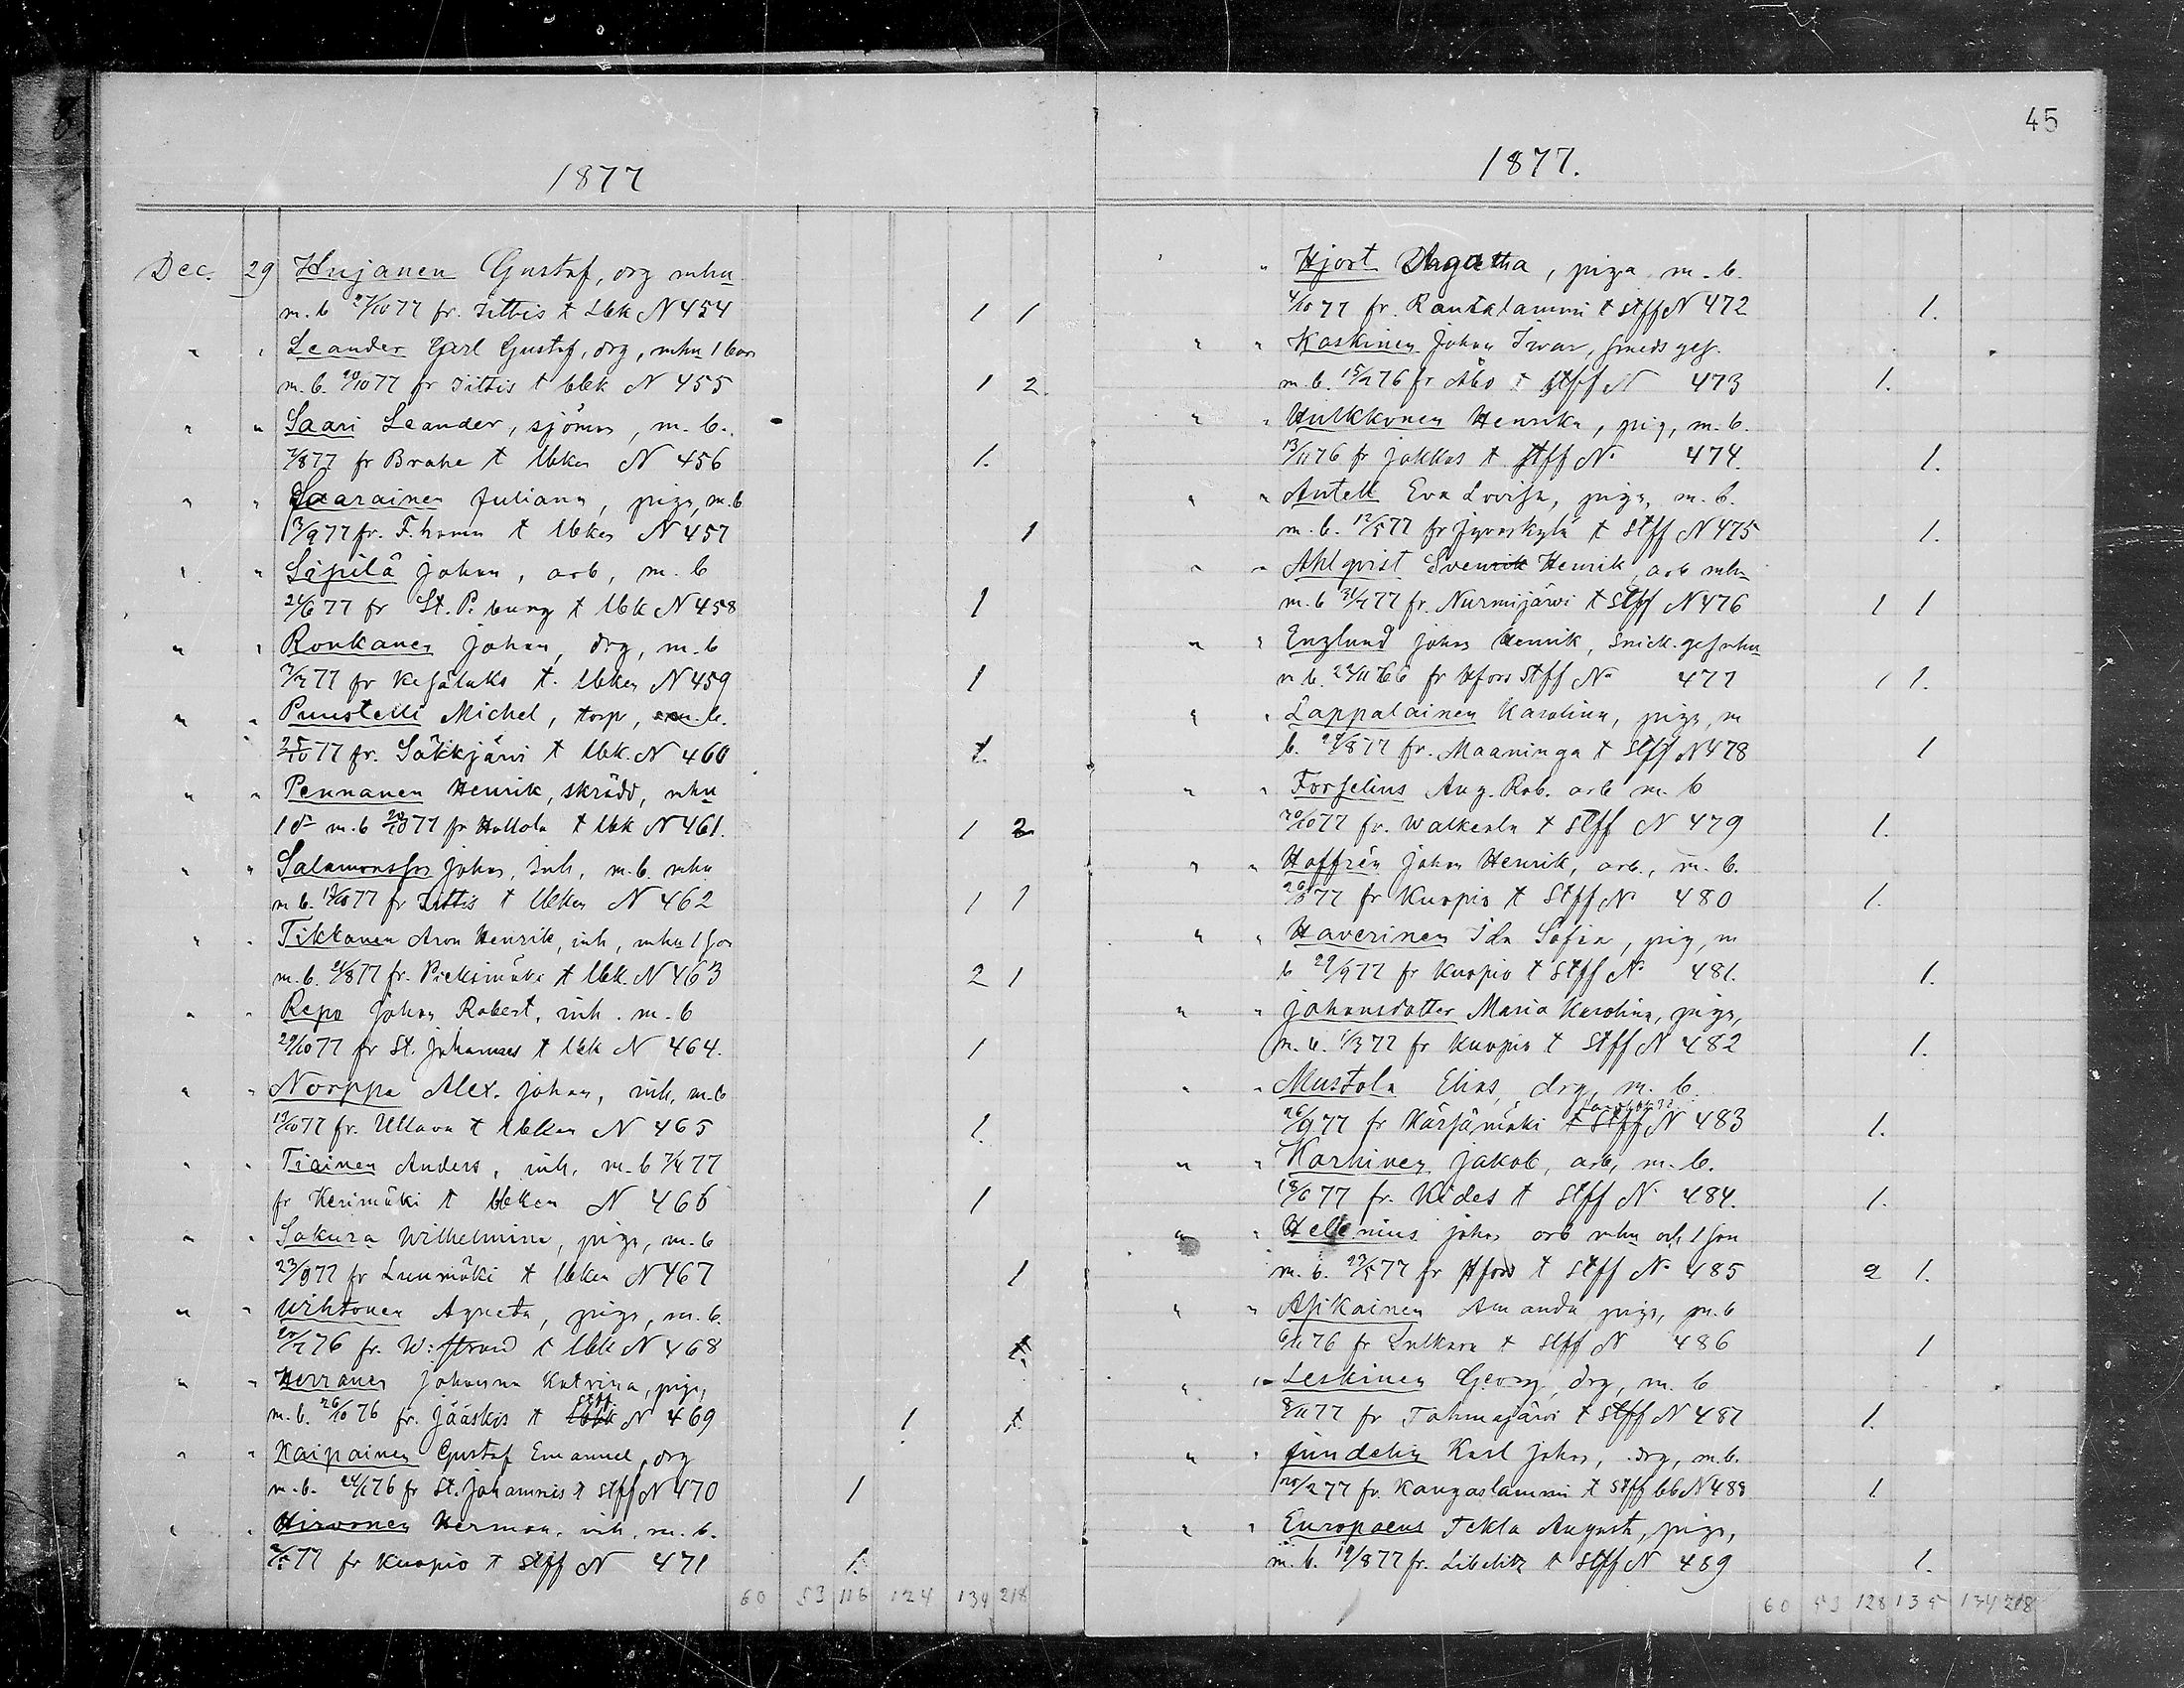 45
1877
Dec. 29 Hujanen Gustaf, drg mhu
m. b 27/10 77 fr. Iittis t lbk N 454 1 1
" " Leander Carl Gustaf, drg, mhu 1 barn
m. b. 29/10 77 fr Iittis t lbk N 455 1 2
" " Saari Leander, sjöman, m. b.
7/8 77 fr Brahe t lbken N 456 1.
" " Saarainen Juliana, piga, m. b
13/9 77 fr. F.hamn t lbken N 457 1
" " Sipilä Johan, arb, m. b
21/6 77 fr St. P. burg t lbk N 458 1
" " Ronkanen Johan, drg, m. b
77 fr Kesälaks t. lbken N 459 1
" " Punstelli Michel, torp, m. b.
25/10 77 fr. Säkkjärvi t lbk. N 460 1.
" " Pennanen Henrik, skrädd, mhu
1 dr m. b 20/10 77 fr Hollola t lbk N 461. 1 2
" " Salamonsson Johan, inh, m. b. mhu
m b. 77 fr Iittis t lbken N 462 1 1
" " Tikkanen Aron Henrik, inh, mhu 1 son
m. b. 77 fr. Pieksimäki t lbk. N 463 2 1
" " Repo Johan Robert, inh. m. b
29/10 77 fr St. Johannes t lbk N 464. 1
" " Norppa Alex. Johan, inh, m. b
12/10 77 fr. Ullava t lbken N 465 1.
" " Tiainen Anders, inh, m. b 77
fr Kerimäki t lbken N 466 1
" " Sakura Wilhelmina, piga, m. b
23/9 77 fr Luumäki t lbken N 467 1
" " Wihtonen Agneta, piga, m. b.
76 fr. W: strand t lbk N 468 1.
" " Herranen Johanna Katrina, piga,
m. b. 26/10 76 fr. Jääskis t lbk stff N 469 1 1
" " Kaipainen Gustaf Emanuel, drg
m. b. 76 fr St. Johannis t stff N 470 1
" " Hirvonen Herman, inh, m. b.
77 fr Kuopio t stff N 471 1.
60 53 116 124 134 218
1877.
" Hjort Agatha, piga m. b.
4/10 77 fr. Rautalammi t stff N 472 1.
" " Koskinen Johan Ivar, smeds ges.
m. b. 15/2 76 fr Åbo t stff N 473 1.
" " Hulkkonen Henrika, pig, m. b.
13/11 76 fr Jokkas t stff No 474. 1.
" " Antell Eva Lovisa, piga, m. b.
m. b. 12/5 77 fr Jyväskylä t stff N 475 1.
" " Ahlqvist Svenrik Henrik, arb mhu
m. b 77 fr. Nurmijärvi t stff N 476 1 1
" " Englund Johan Henrik, snick. ges mhu
m b. 23/11 66 fr Hfors stff No 477 1 1.
" " Lappalainen Karolina, piga, m
b. 29/8 77 fr. Maaninga t stff N 478 1
" " Forselius Aug. Rob. arb m. b
77 fr. Walkeala t stff N 479 1.
" " Hoffrén Johan Henrik, arb., m. b.
77 fr Kuopio t Stff No 480 1.
" " Haverinen Ida Sofia, pig, m
b 29/9 77 fr Kuopio t stff No 481. 1.
" " Johansdotter Maria Karolina, piga,
m. b. 1/3 77 fr Kuopio t Stff N 482 1.
" " Mustola Elias, drg, m. b
26/9 77 fr Kärsämäki t stff N 483 1.
" " Karhinen Jakob, arb, m. b.
18/6 77 fr. Kides t stff No 484. 1.
" " Hellenius Johan arb mhu och 1 son
m. b. 23/5 77 fr Hfors t stff No 485 2 1.
" " Asikainen Amanda piga, m. b
6/11 76 fr Sulkava t stff N 486 1
" " Leskinen Georg, drg, m. b
8/11 77 fr Tohmajärvi t stff N 487 1.
" " Sundelin Karl Johan, drg, m. b.
20/2 77 fr. Kangaslammi t stff bb N 488 1.
" " Europaeus Tekla Augusta, piga,
m. b. 19/8 77 fr. Libelitz t stff N 489 1.
60 53 128 135 134 218